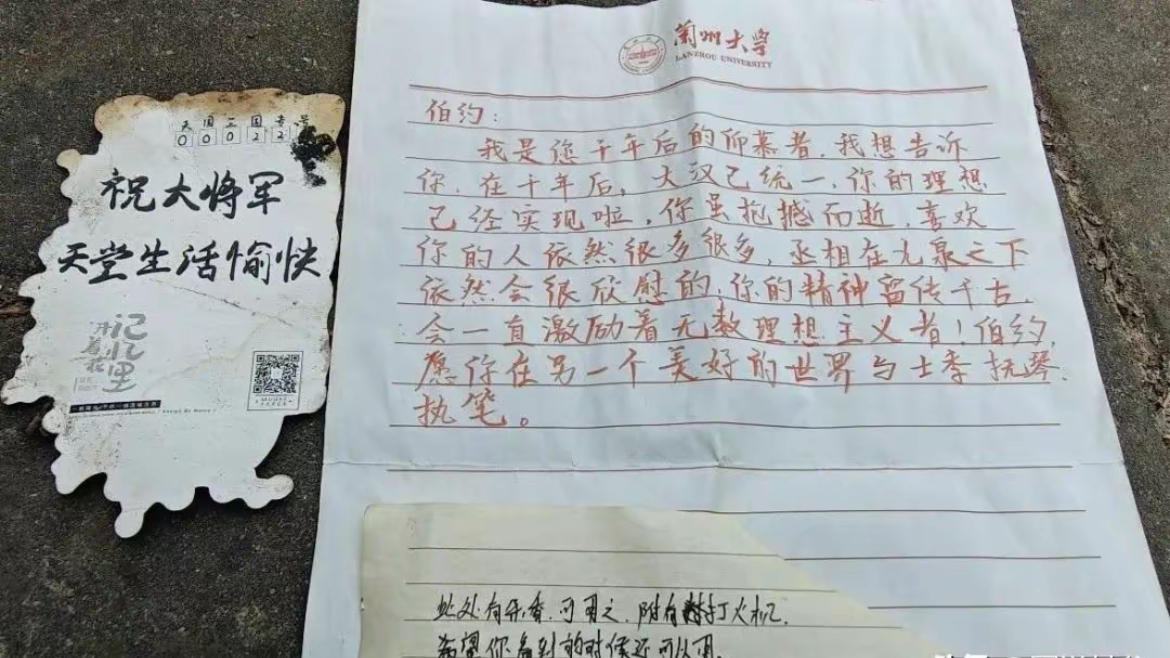 天国三国专号
00022
祝大将军
天堂生活愉快
记忆里
开着花
兰州大学
LANZHOU UNIVERSITY
伯约:
我是您千年后的仰慕者,我想告诉
你,在千年后,大汉已统一,你的理想
已经实现啦,你虽抱撼而逝,喜欢
你的人依然很多很多,丞相在九泉之下
依然会很欣慰的,你的精神留传千古,
会一直激励着无数理想主义者!伯约,
愿你在另一个美好的世界与士季抚琴
执笔。
此处有香,可用之,附有打火机,
希望你看到的时候还可以用。